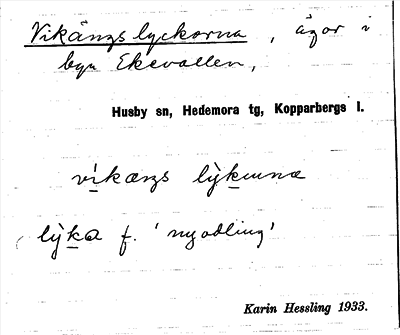 Vikängslyckorna, ägor i
byn Ekevallen,
Husby sn, Hedemora tg, Kopparbergs l.
vikængs lỳkuna
lỳka f. 'nyodling'
Karin Hessling 1933.